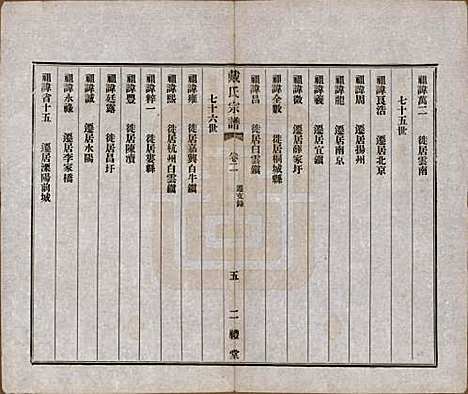 祖諱萬二 遷居雲南
七十五世
祖諱良浩 遷居北京
祖諱周 遷居揚州
祖諱龍 遷居南京
祖諱義 遷居宜鎭
祖諱微 遷居薛家圩
祖諱全數 徙居桐城縣
祖諱昌 徙居白雲鎭
戴氏宗譜 卷二 遷支錄 五 二禮堂
七十六世
祖諱雍 徙居嘉興白牛鎭
祖諱熙 徙居杭州白雲鎭
祖諱粹一 徙居婁縣
祖諱豐 徙居陳瀆
祖諱廷璐 徙居昌圩
祖諱誠 遷居水陽
祖諱永祿 遷居李家橋
祖諱省十五 遷居溧陽前城